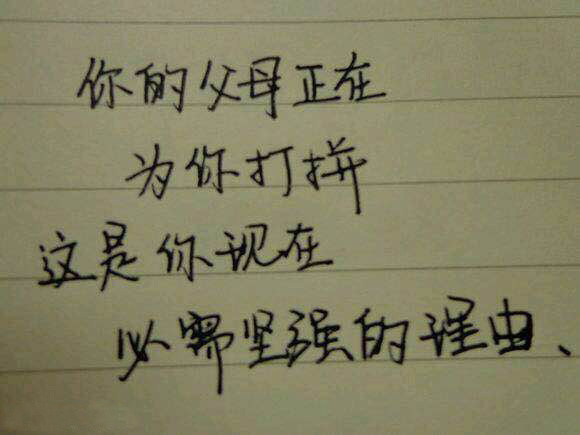 你的父母正在
为你打拼
这是你现在
必需坚强的理由、